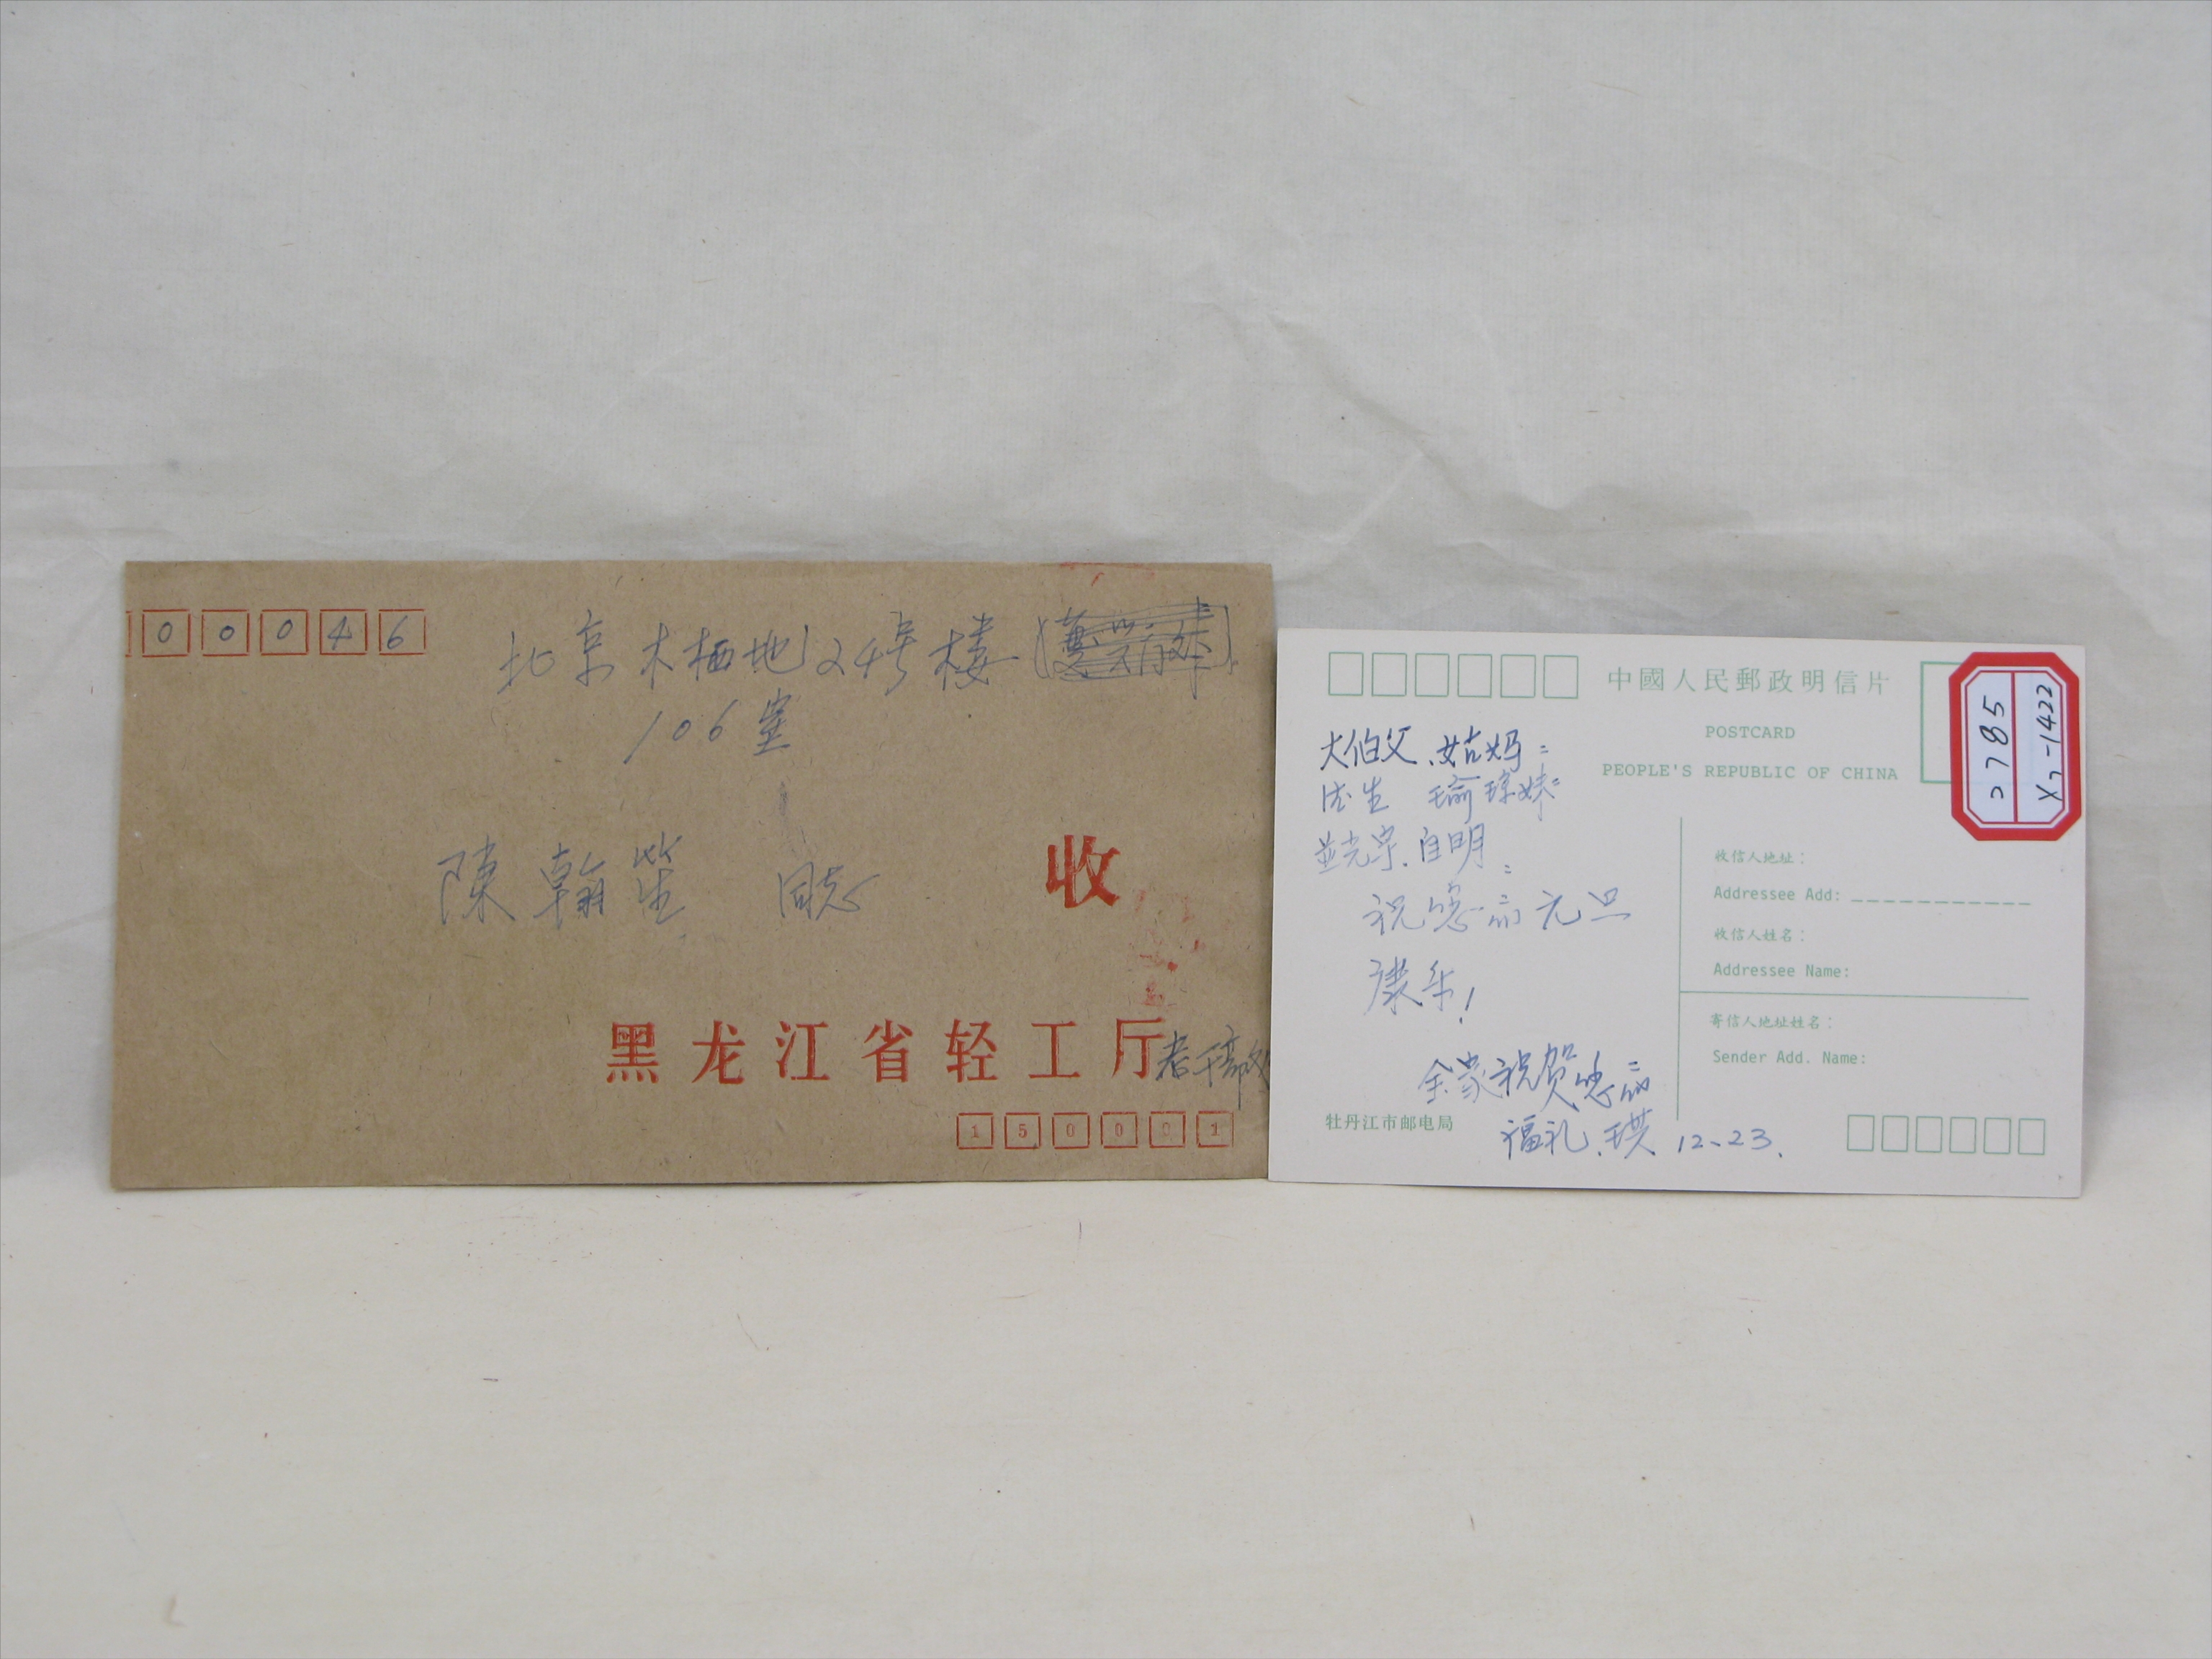 00046
北京木栖地24号楼
106室
陳翰笙 同志 收
黑龙江省轻工厅老干部处
150001
中國人民郵政明信片
POSTCARD
PEOPLE'S REPUBLIC OF CHINA
2785
X7-1422
大伯父、姑妈:
瑜琼妹:
並光宗、自明:
祝您们元旦
康乐!
全家祝贺您们
福礼、琪 12、23、
牡丹江市邮电局
收信人地址:
Addressee Add:
收信人姓名:
Addressee Name:
寄信人地址姓名:
Sender Add. Name: